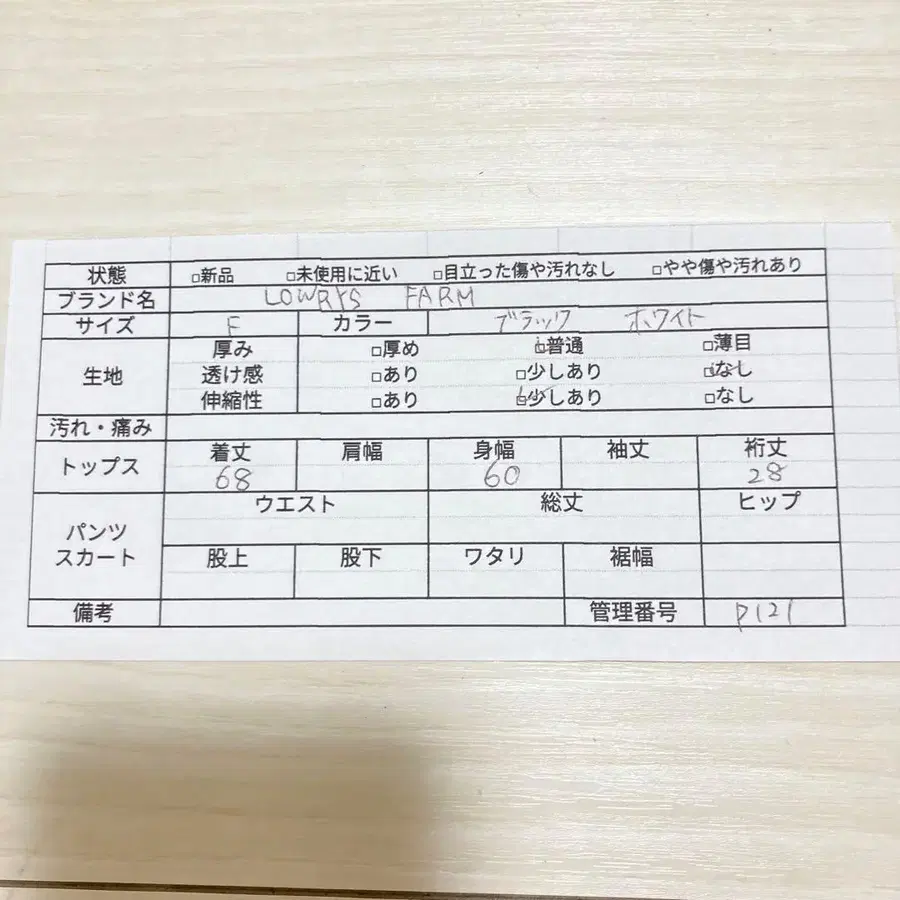 状態 □新品 □未使用に近い □目立った傷や汚れなし □やや傷や汚れあり
ブランド名 LOWRYS FARM
サイズ F カラー ブラック ホワイト
生地 厚み □厚め □普通 □薄目
透け感 □あり □少しあり □なし
伸縮性 □あり □少しあり □なし
汚れ・痛み
トップス 着丈 肩幅 身幅 袖丈 裄丈
68 60 28
パンツ スカート ウエスト 総丈 ヒップ
股上 股下 ワタリ 裾幅
備考 管理番号 P121